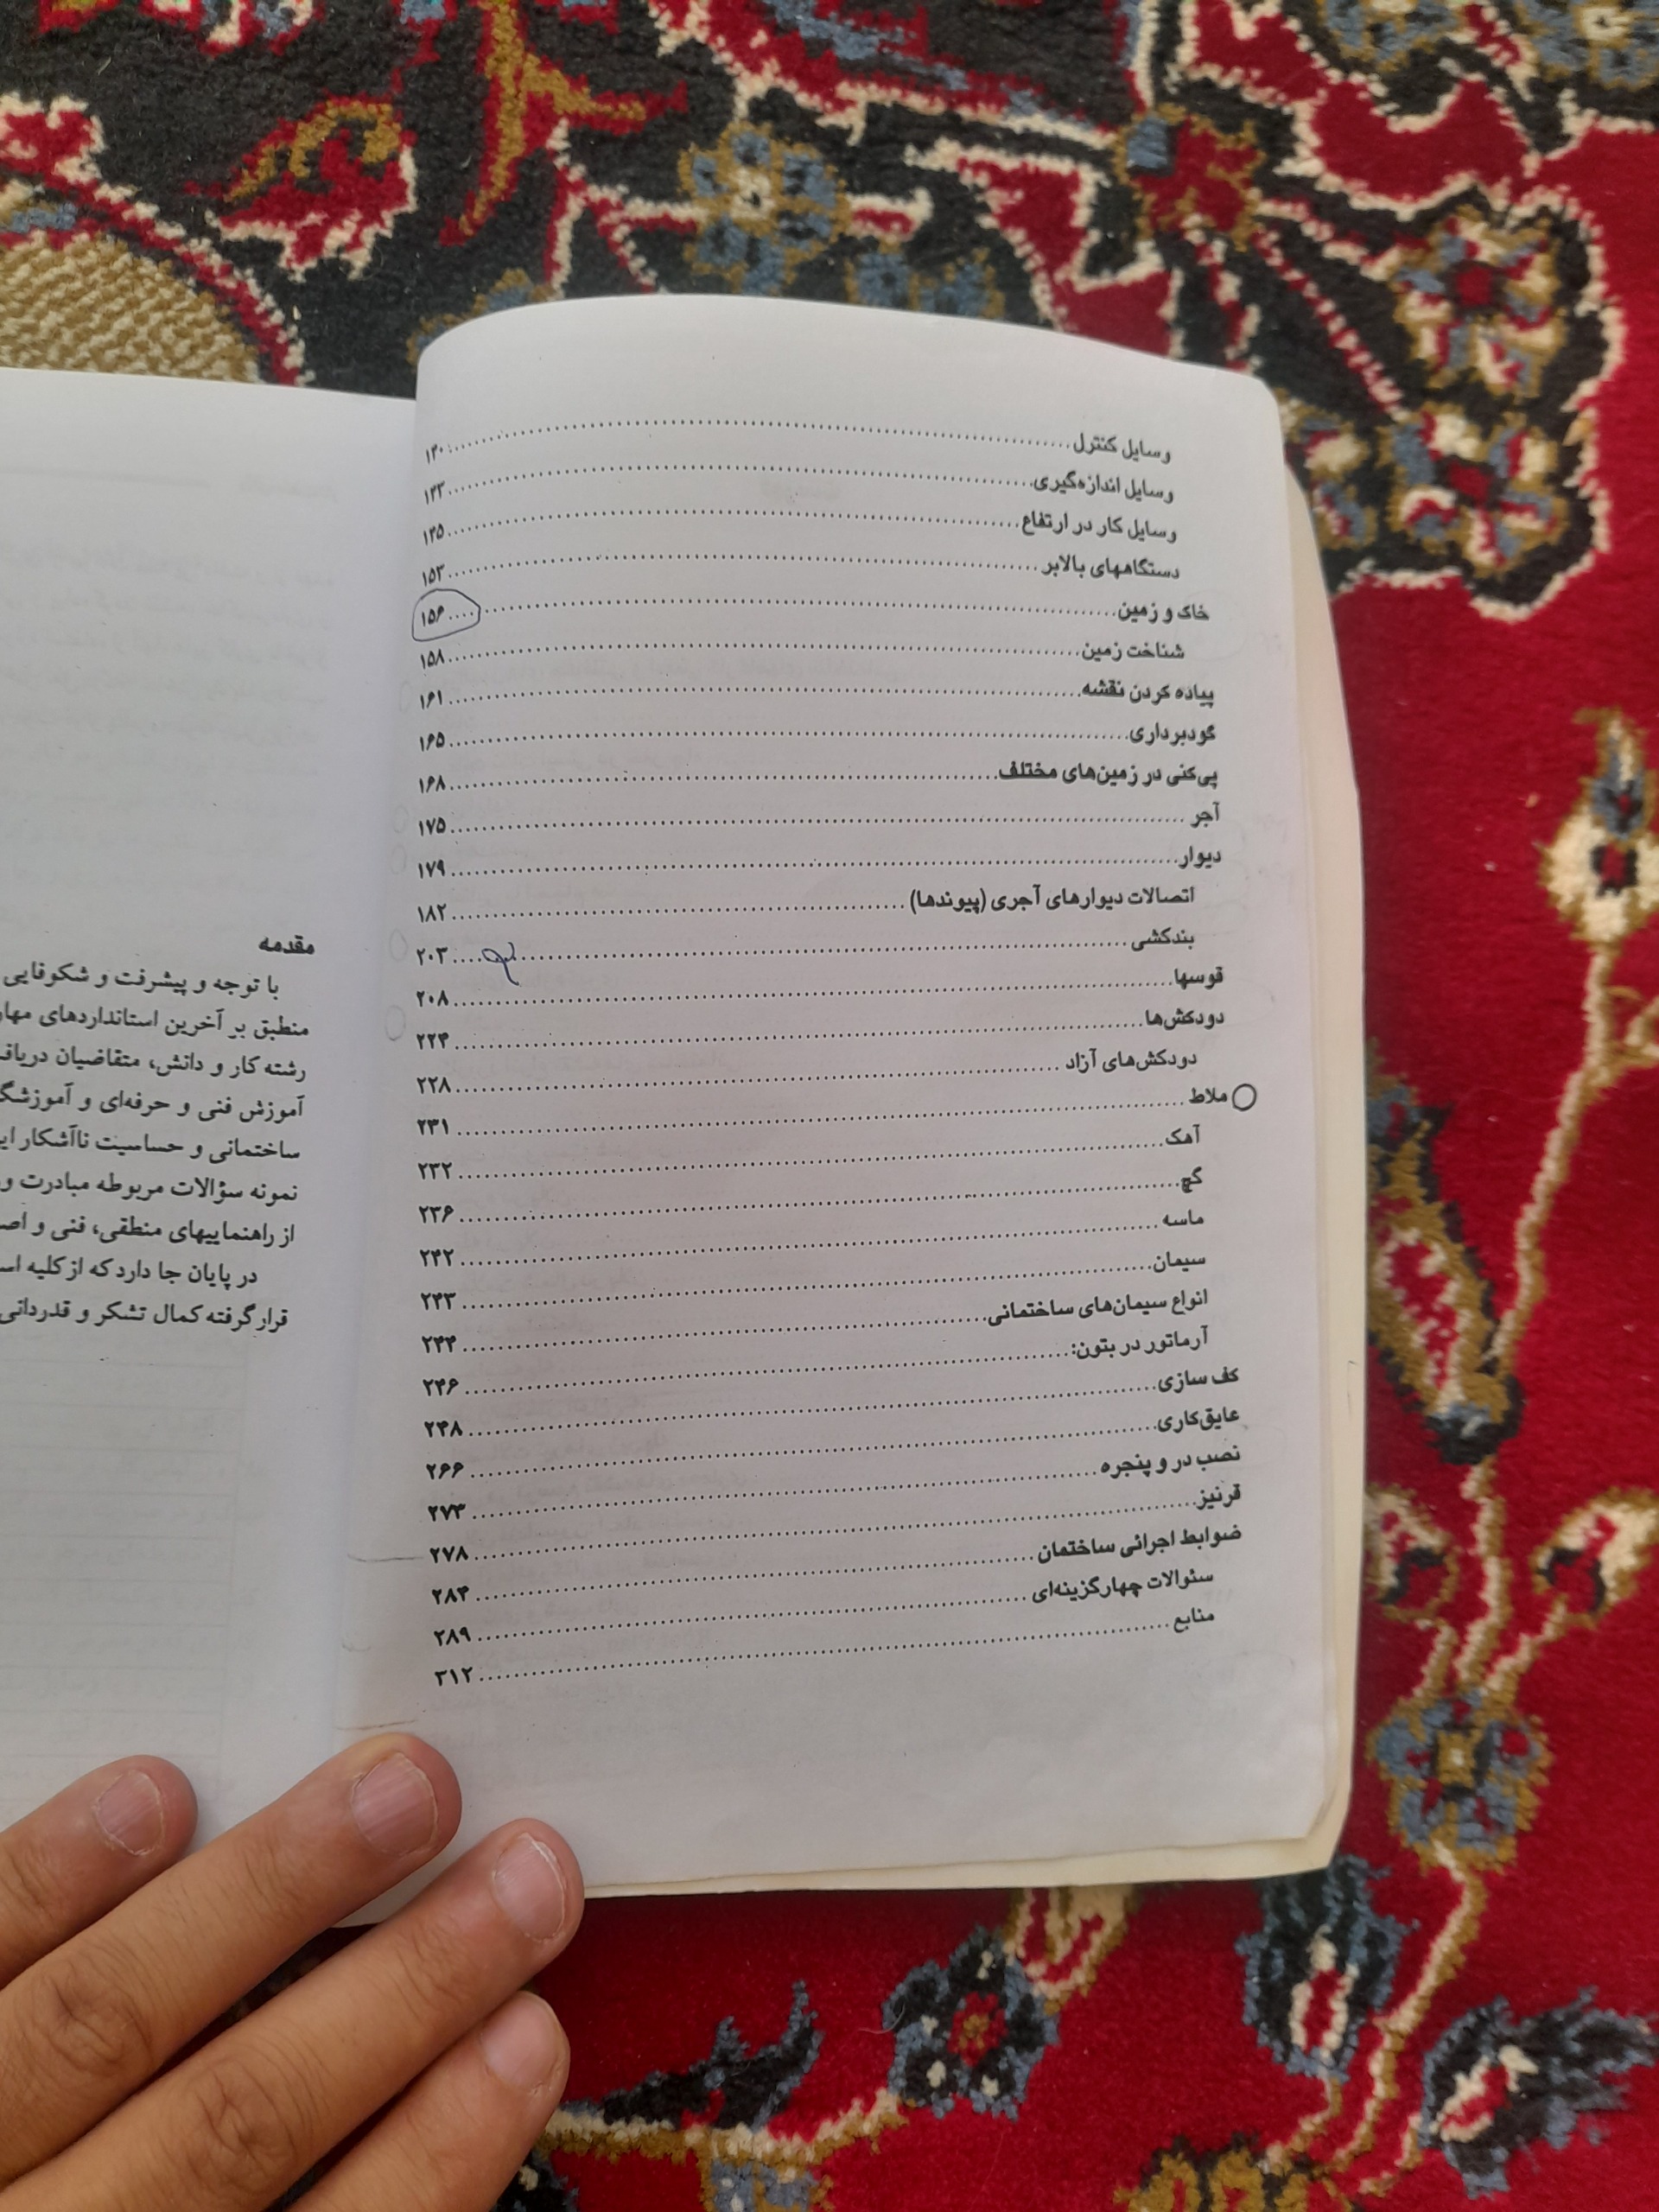 وسایل کنترل ........ ۱۴۰
وسایل اندازه‌گیری ........ ۱۴۳
وسایل کار در ارتفاع ........ ۱۴۵
دستگاههای بالابر ........ ۱۵۳
خاک و زمین ........ ۱۵۶
شناخت زمین ........ ۱۵۸
پیاده کردن نقشه ........ ۱۶۱
گودبرداری ........ ۱۶۵
پی‌کنی در زمین‌های مختلف ........ ۱۶۸
آجر ........ ۱۷۵
دیوار ........ ۱۷۹
اتصالات دیوارهای آجری (پیوندها) ........ ۱۸۲
بندکشی ........ ۲۰۳
قوسها ........ ۲۰۸
دودکش‌ها ........ ۲۲۴
دودکش‌های آزاد ........ ۲۲۸
ملاط ........ ۲۳۱
آهک ........ ۲۳۲
گچ ........ ۲۳۶
ماسه ........ ۲۴۲
سیمان ........ ۲۴۳
انواع سیمان‌های ساختمانی ........ ۲۴۴
آرماتور در بتون: ........ ۲۴۶
کف سازی ........ ۲۴۸
عایق‌کاری ........ ۲۶۶
نصب در و پنجره ........ ۲۷۳
قرنیز ........ ۲۷۸
ضوابط اجرائی ساختمان ........ ۲۸۴
سئوالات چهارگزینه‌ای ........ ۲۸۹
منابع ........ ۳۱۲
مقدمه
با توجه و پیشرفت و شکوفایی
منطبق بر آخرین استانداردهای
رشته کار و دانش، متقاضیان
آموزش فنی و حرفه‌ای و
ساختمانی و حساسیت ناآشکار
نمونه سؤالات مربوطه مبادرت و
از راهنماییهای منطقی، فنی و
در پایان جا دارد که از کلیه
قرار گرفته کمال تشکر و قدردانی